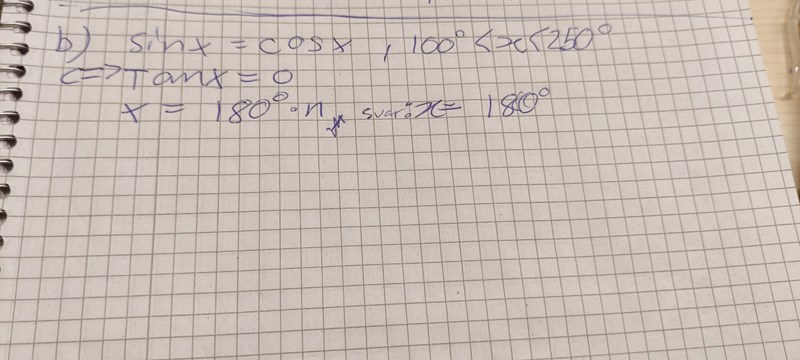 b) sinx = cosx , 100° < x < 250°
<=> Tanx = 0
x = 180° · n, svar: x = 180°